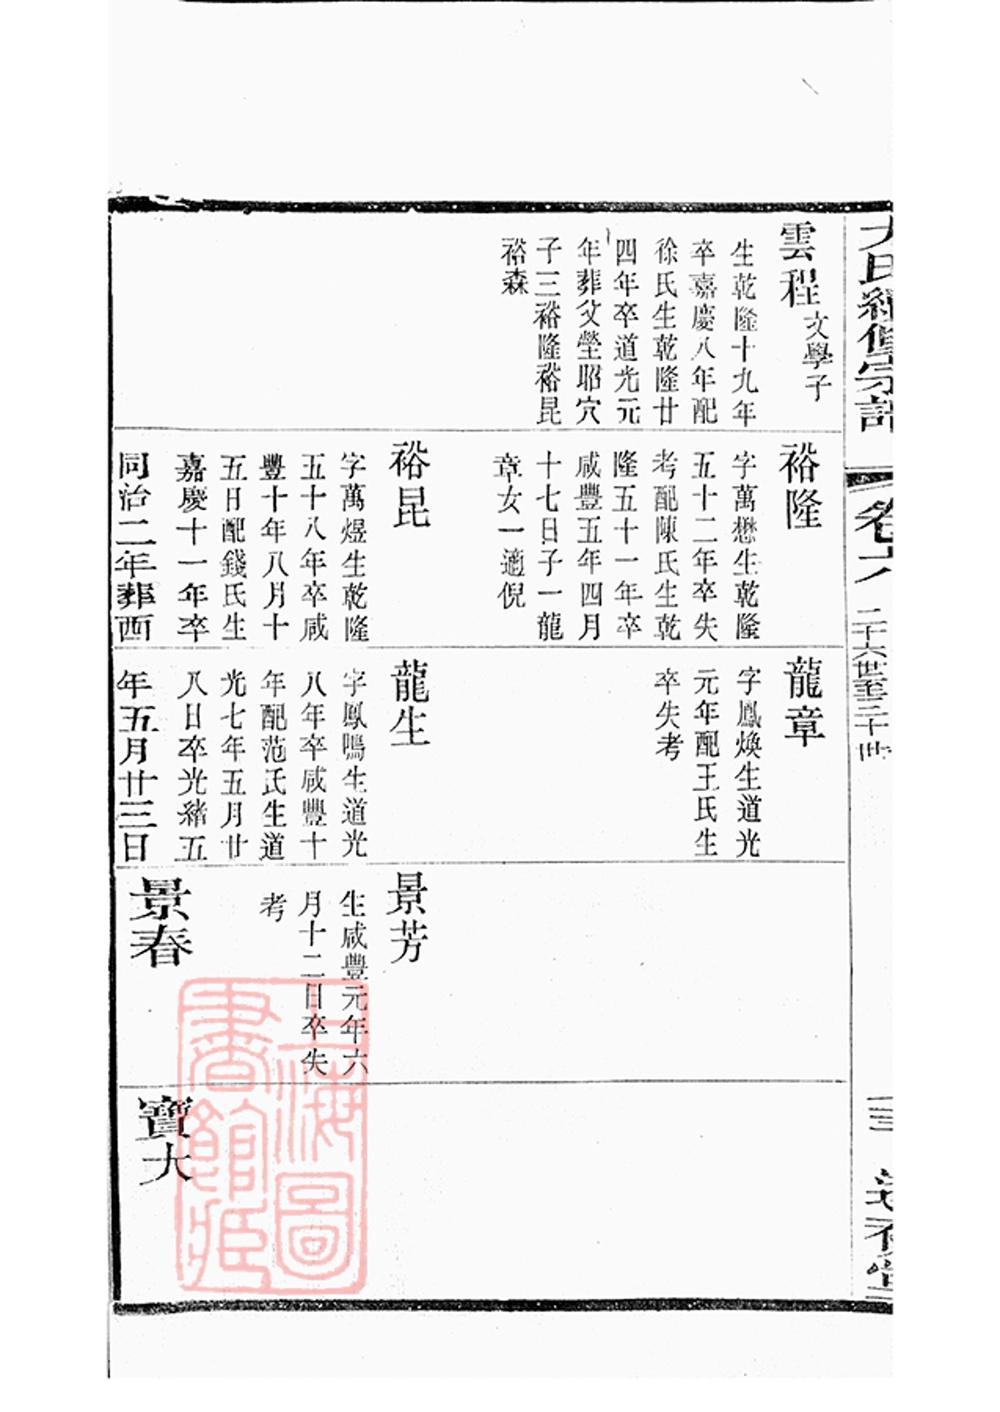 卷六
二十六世至三十世
三
雲程 文學子
生乾隆十九年
卒嘉慶八年配
徐氏生乾隆廿
四年卒道光元
年葬父塋昭穴
子三裕隆裕昆
裕森
裕隆
字萬懋生乾隆
五十二年卒失
考配陳氏生乾
隆五十一年卒
咸豐五年四月
十七日子一龍
章女一適倪
裕昆
字萬煜生乾隆
五十八年卒咸
豐十年八月十
五日配錢氏生
嘉慶十一年卒
同治二年葬西
龍章
字鳳煥生道光
元年配王氏生
卒失考
龍生
字鳳鳴生道光
八年卒咸豐十
年配范氏生道
光七年五月廿
八日卒光緒五
年五月廿三日
景芳
生咸豐元年六
月十二日卒失
考
景春
寶大
上海圖
書館藏